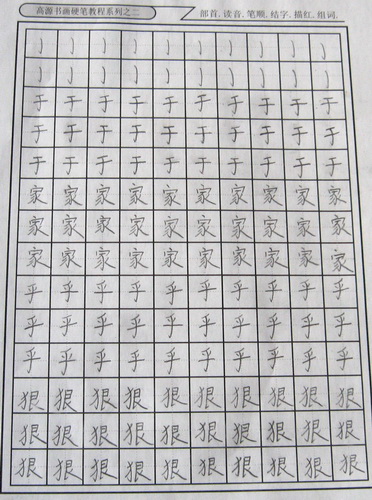 高源书画硬笔教程系列之二 部首.读音.笔顺.结字.描红.组词.
亅 亅 亅 亅 亅 亅 亅 亅 亅 亅
亅 亅 亅 亅 亅 亅 亅 亅 亅 亅
于 于 于 于 于 于 于 于 于 于
于 于 于 于 于 于 于 于 于 于
于 于 于 于 于 于 于 于 于 于
家 家 家 家 家 家 家 家 家 家
家 家 家 家 家 家 家 家 家 家
家 家 家 家 家 家 家 家 家 家
乎 乎 乎 乎 乎 乎 乎 乎 乎 乎
乎 乎 乎 乎 乎 乎 乎 乎 乎 乎
乎 乎 乎 乎 乎 乎 乎 乎 乎 乎
狠 狠 狠 狠 狠 狠 狠 狠 狠 狠
狠 狠 狠 狠 狠 狠 狠 狠 狠 狠
狠 狠 狠 狠 狠 狠 狠 狠 狠 狠